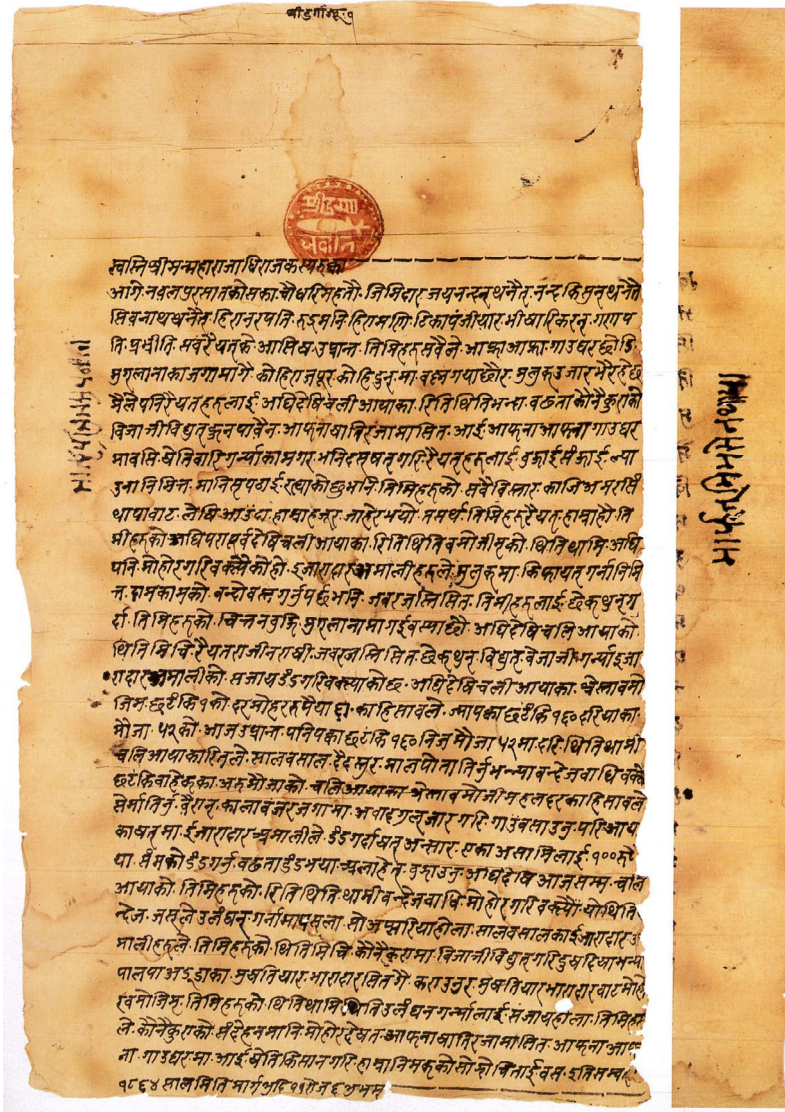 श्रीदुर्गाज्यू १
श्रीदुर्गा
भवानि
स्वस्ति श्रीमन्महाराजाधिराजकस्य रुक्का
आगे नवलपरसातकोसका चौधरि महतौ जिमिदार जयनन्दन थनैत नन्दकिसुन थनैत
सिवनाथ थनैत हिरा नरपति रुद्रमनि हिरामणि टिका पंजीयार भीषारि करन गणप
ति प्रभीति सर्वरैयतके आसिष उप्रान्त तिमिहरू सवैले आफ्ना आफ्ना गाउघर छोडि
मुगलानाका जगामागै कोहि राजपूर कोहि मा वस्न गयाछौ र मुलुक उजार भैरहेछ
मैले पनि रैयतहरूलाई अघिदेषि चली आयाका रितिथितिभन्दा वढता कौनै कुराको
विजाजी विद्युत हुन पावैन आफ्ना षातिरजामासित आई आफ्ना आफ्ना गाउघर
मा वसि षेतिवारि गर्न्याकाम गर भनि दसषत गरि रैयतहरूलाई वुझाई सोझाई ल्या
उना निमित्त मानिस पठाई राषाको छु भनि तिमिहरूको सवै विस्तार काजि अमरसिं
थापावाट लेषि आउंदा हाम्रा हजुर जाहेर भयो तसर्थ तिमिहरू रैयत हाम्रा हौ ति
मीहरूको अघि परापूर्वदेषि चली आयाका रितिथिति वमोजीमको थितिथामि अघि
पनि मोहोर गरिवक्सेकै हो इजारादार अमालीहरूले मुलुकमा किफायत गर्ना निमि
त्त दामकामको वन्दोवस्त गर्नुपर्छ भनि जवरजस्तिसित तिमीहरूलाई छेकथुन ग
र्दा तिमिहरूको चित्त नवुझि मुगलानामा गई वस्याछौ अघिदेषि चलि आयाको
थिति मिचि रैयत राजी नराषी जवरजस्तिसित छेकथुन विद्युत वेजाजी गर्न्या इजा
रादार अमालीको सजाय डंड गरिवक्स्याको छ अघिदेषि चली आयाका षेस्राव मो
जिम छटंकि १ को दर मोहर रुपैया का हिसावले ज्मा पका छटंकि १६० दरियाका
मौजा ५२ को आज उप्रान्त पनि पका छटंकि १६० निज मौजा ५२ मा दरि थितिथामी
चलि आयाका रितले सालवसाल दैदस्तुर मालपोत तिर्नु भन्या वन्देज वाधिवक्स्यौं
छटंकि वाहेकका अरु मौजाको चलि आयाका षेस्राव मोजीम हलदरका हिसावले
सेर्मा तिर्नु वैरान कालावंजर जगामा अवाद गुलजार गरि गाउ वसाउनु परि आय
का षतमा ईजारादार अमालीले डंड गर्दा षत अनुसार एका असामिलाई १०० रुपै
या संमको डंड गर्नु वढता डंड भया भन्या हेत वुझाउनु अघिदेषि आजसम्म चलि
आयाको तिमिहरूको रितिथिति थामी वन्देज वाधि मोहोर गरिवक्स्यौं यो थिति
न्देज जसले उलंघन गर्ला मा पर्ला सो अप्सरिया होला सालवसालका ईजारादार अ
मालीहरूले तिमिहरूको थिति मिचि कौनै कुरामा विजाजी विद्युत गरि दुष दिया भन्या
पालपा अड्डाका मुषतियार भारादारसित गै कराउनु र मुषतियार भारादारवाट मोहो
रवमोजिम तिमिहरूको थितिथामि थिति उलंघन गर्न्यालाई संजाय होला तिमिह
ले कौनै कुराको संदेह नमानि मोहोर देषत आफ्ना षातिरजामासित आफ्ना आफ्
ना गाउघरमा आई षेति किसान गरि हाम्रा निमकको सोझो चिताई वस इति सम्वत्
१८६४ साल मिति मार्गशुदि रोज ६ शुभम्
मार्फत् भिमसेन थापा